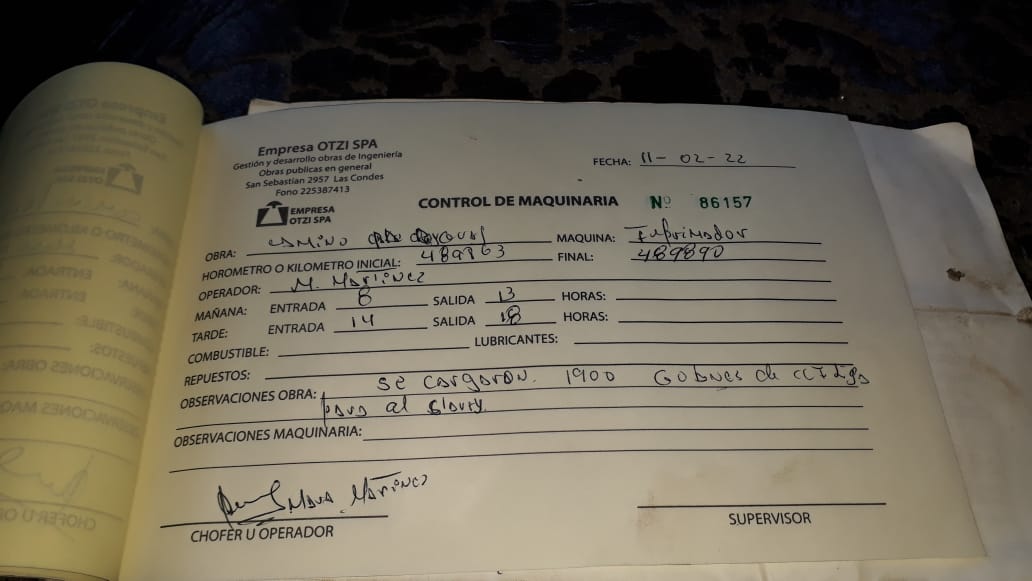 Empresa OTZI SPA
Gestión y desarrollo obras de Ingeniería
Obras publicas en general
San Sebastian 2957 Las Condes
Fono 225387413
EMPRESA
OTZI SPA
FECHA: 11-02-22
CONTROL DE MAQUINARIA Nº 86157
OBRA: camino MAQUINA: Inprimador
HOROMETRO O KILOMETRO INICIAL: 489863 FINAL: 489890
OPERADOR: M. Martinez
MAÑANA: ENTRADA 8 SALIDA 13 HORAS:
TARDE: ENTRADA 14 SALIDA 18 HORAS:
COMBUSTIBLE: LUBRICANTES:
REPUESTOS:
OBSERVACIONES OBRA: se cargaron. 1900 de
para al slurry
OBSERVACIONES MAQUINARIA:
Martinez
CHOFER U OPERADOR
SUPERVISOR